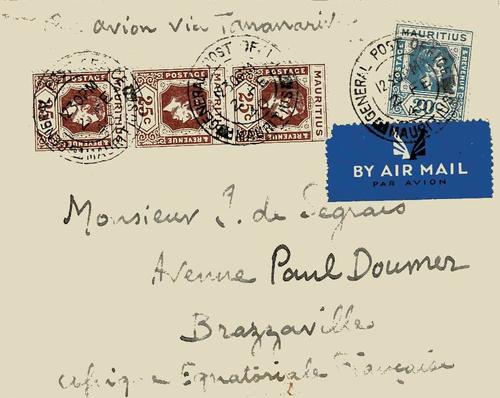 Par avion via Tananarive
POSTAGE POSTAGE POSTAGE
25c 25c 25c
MAURITIUS MAURITIUS
& REVENUE & REVENUE & REVENUE
GENERAL POST OFFICE
MAURITIUS
MAURITIUS
POSTAGE
& REVENUE
20c
GENERAL POST OFFICE
MAURITIUS
BY AIR MAIL
PAR AVION
Monsieur J. de Segrais
Avenue Paul Doumer
Brazzaville
Afrique Equatoriale Française